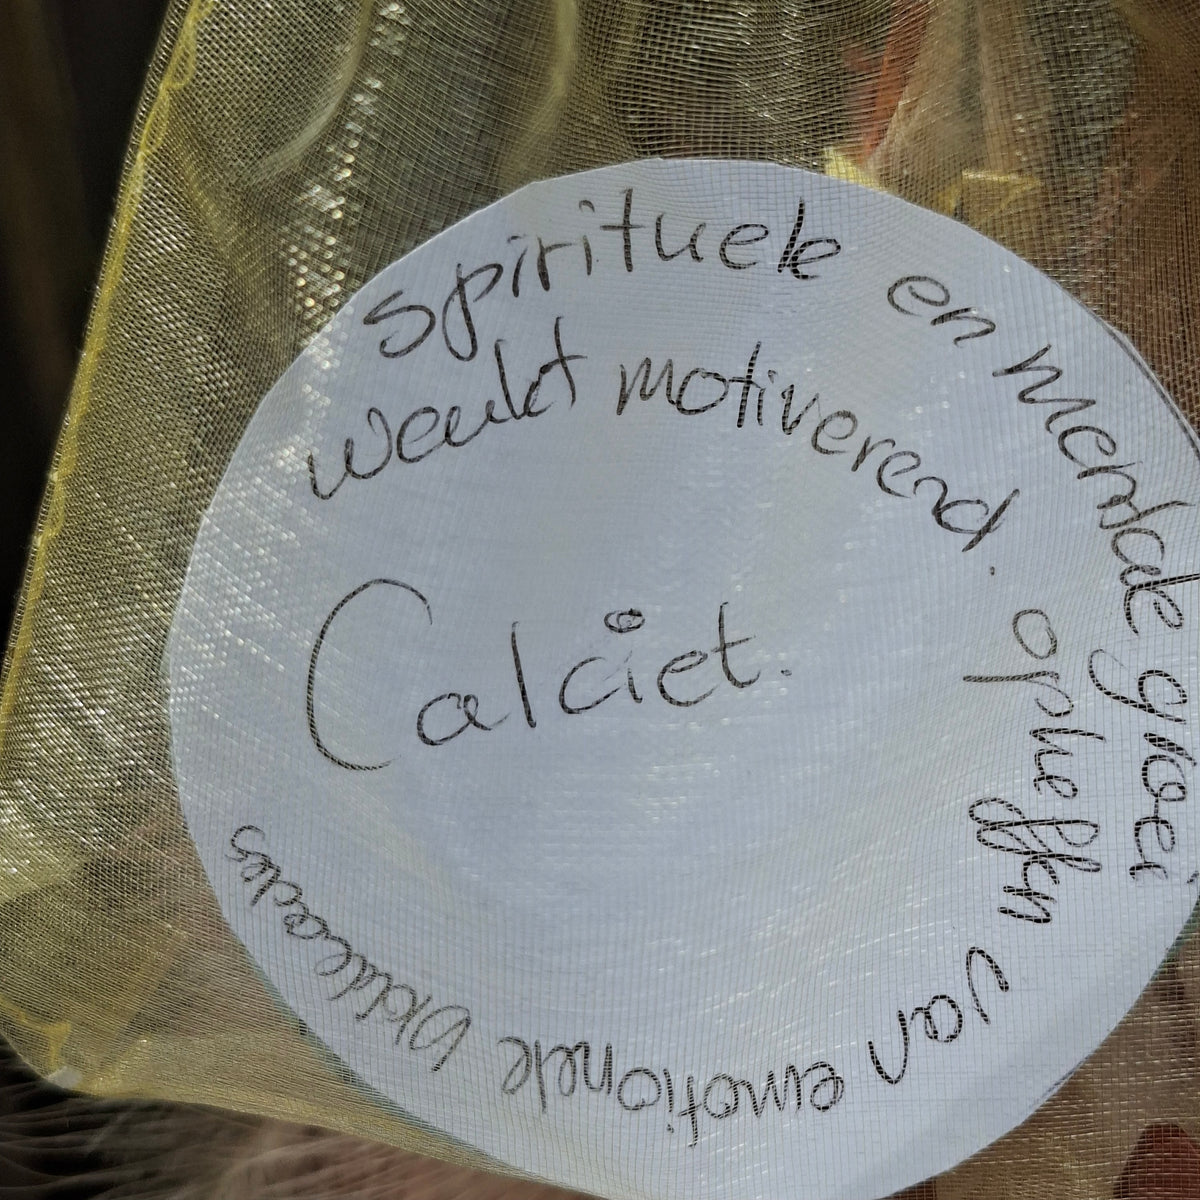 spirituele en mendale groei
opheffen van emotionele blokkades
werkt motiverend.
Calciet.